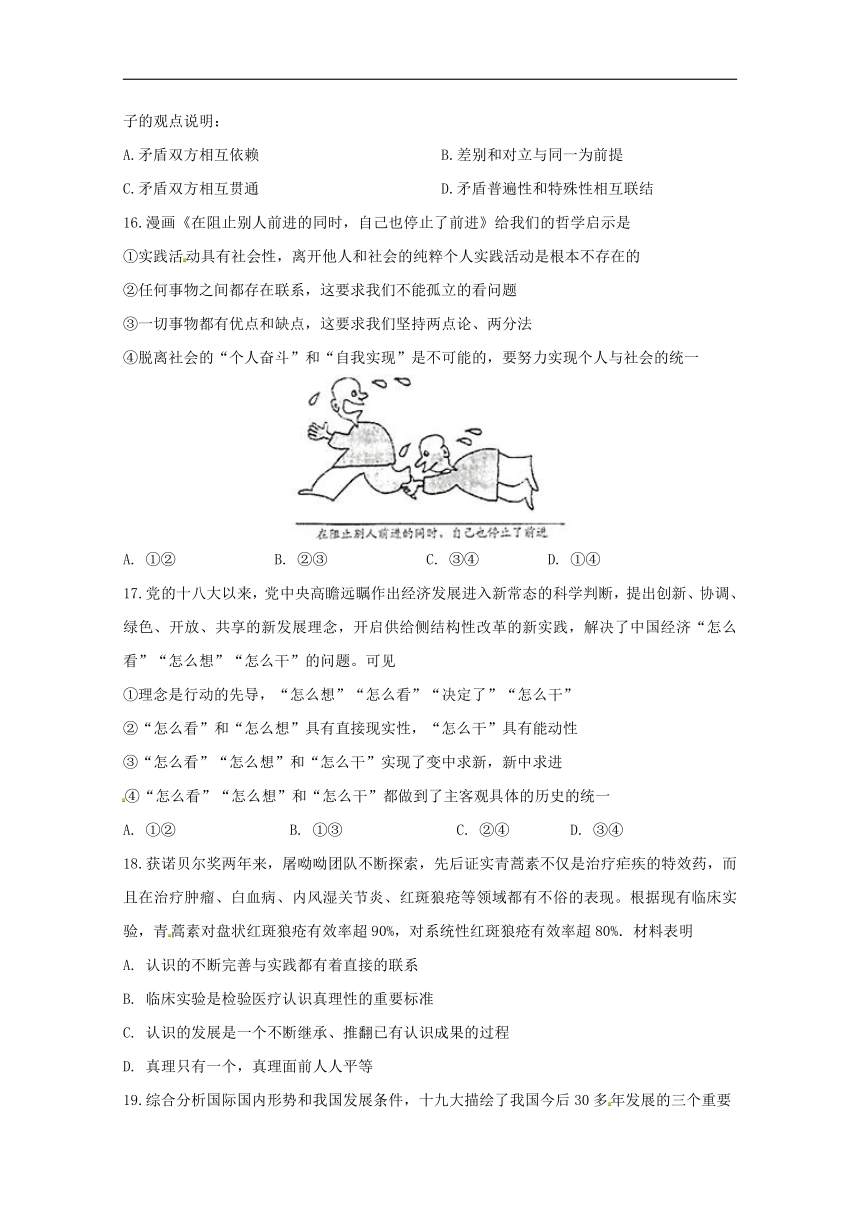 子的观点说明:
A.矛盾双方相互依赖 B.差别和对立与同一为前提
C.矛盾双方相互贯通 D.矛盾普遍性和特殊性相互联结
16.漫画《在阻止别人前进的同时，自己也停止了前进》给我们的哲学启示是
①实践活动具有社会性，离开他人和社会的纯粹个人实践活动是根本不存在的
②任何事物之间都存在联系，这要求我们不能孤立的看问题
③一切事物都有优点和缺点，这要求我们坚持两点论、两分法
④脱离社会的“个人奋斗”和“自我实现”是不可能的，要努力实现个人与社会的统一
在阻止别人前进的同时，自己也停止了前进
A. ①② B. ②③ C. ③④ D. ①④
17.党的十八大以来，党中央高瞻远瞩作出经济发展进入新常态的科学判断，提出创新、协调、
绿色、开放、共享的新发展理念，开启供给侧结构性改革的新实践，解决了中国经济“怎么
看”“怎么想”“怎么干”的问题。可见
①理念是行动的先导，“怎么想”“怎么看”“决定了”“怎么干”
②“怎么看”和“怎么想”具有直接现实性，“怎么干”具有能动性
③“怎么看”“怎么想”和“怎么干”实现了变中求新，新中求进
④“怎么看”“怎么想”和“怎么干”都做到了主客观具体的历史的统一
A. ①② B. ①③ C. ②④ D. ③④
18.获诺贝尔奖两年来，屠呦呦团队不断探索，先后证实青蒿素不仅是治疗疟疾的特效药，而
且在治疗肿瘤、白血病、内风湿关节炎、红斑狼疮等领域都有不俗的表现。根据现有临床实
验，青蒿素对盘状红斑狼疮有效率超90%，对系统性红斑狼疮有效率超80%．材料表明
A. 认识的不断完善与实践都有着直接的联系
B. 临床实验是检验医疗认识真理性的重要标准
C. 认识的发展是一个不断继承、推翻已有认识成果的过程
D. 真理只有一个，真理面前人人平等
19.综合分析国际国内形势和我国发展条件，十九大描绘了我国今后30多年发展的三个重要